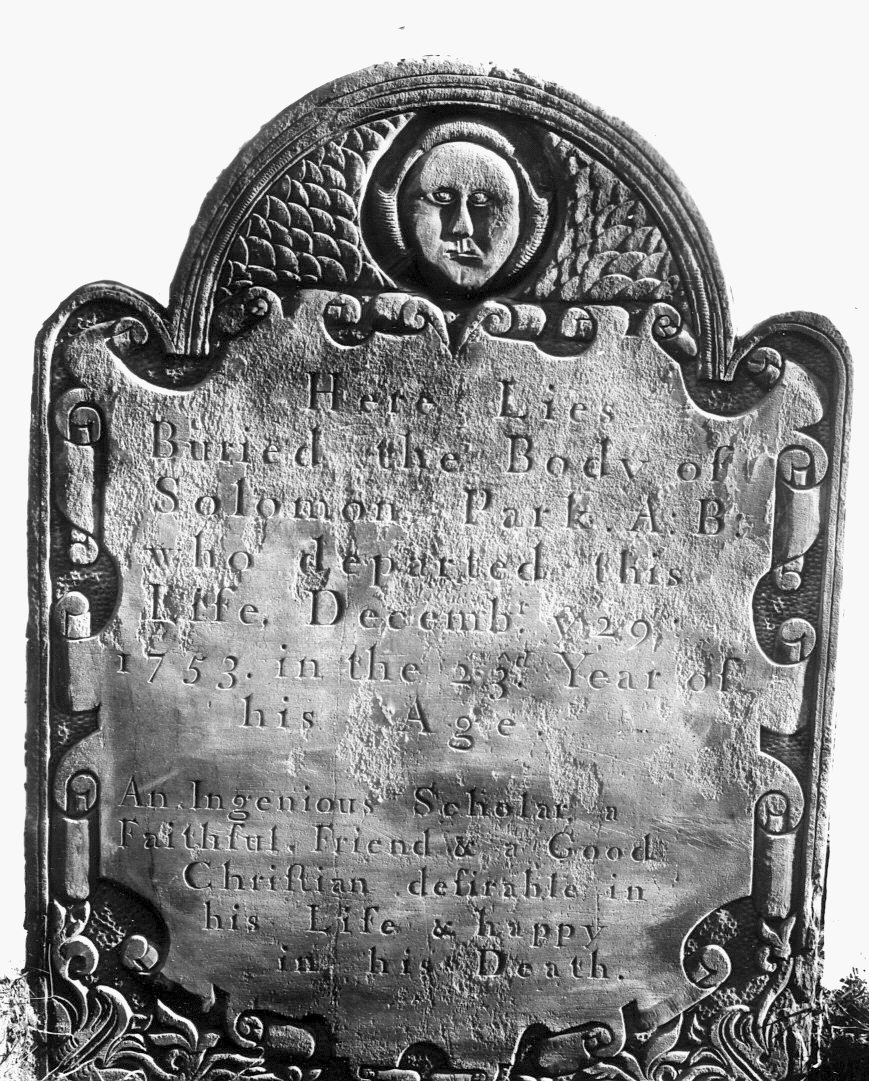 Here Lies
Buried the Body of
Solomon Park. A:B:
who departed this
Life, Decembr. ye 29,
1753. in the 23rd. Year of
his Age
An Ingenious Scholar, a
Faithful, Friend & a Good
Chriſtian deſirable in
his Life & happy
in his Death.